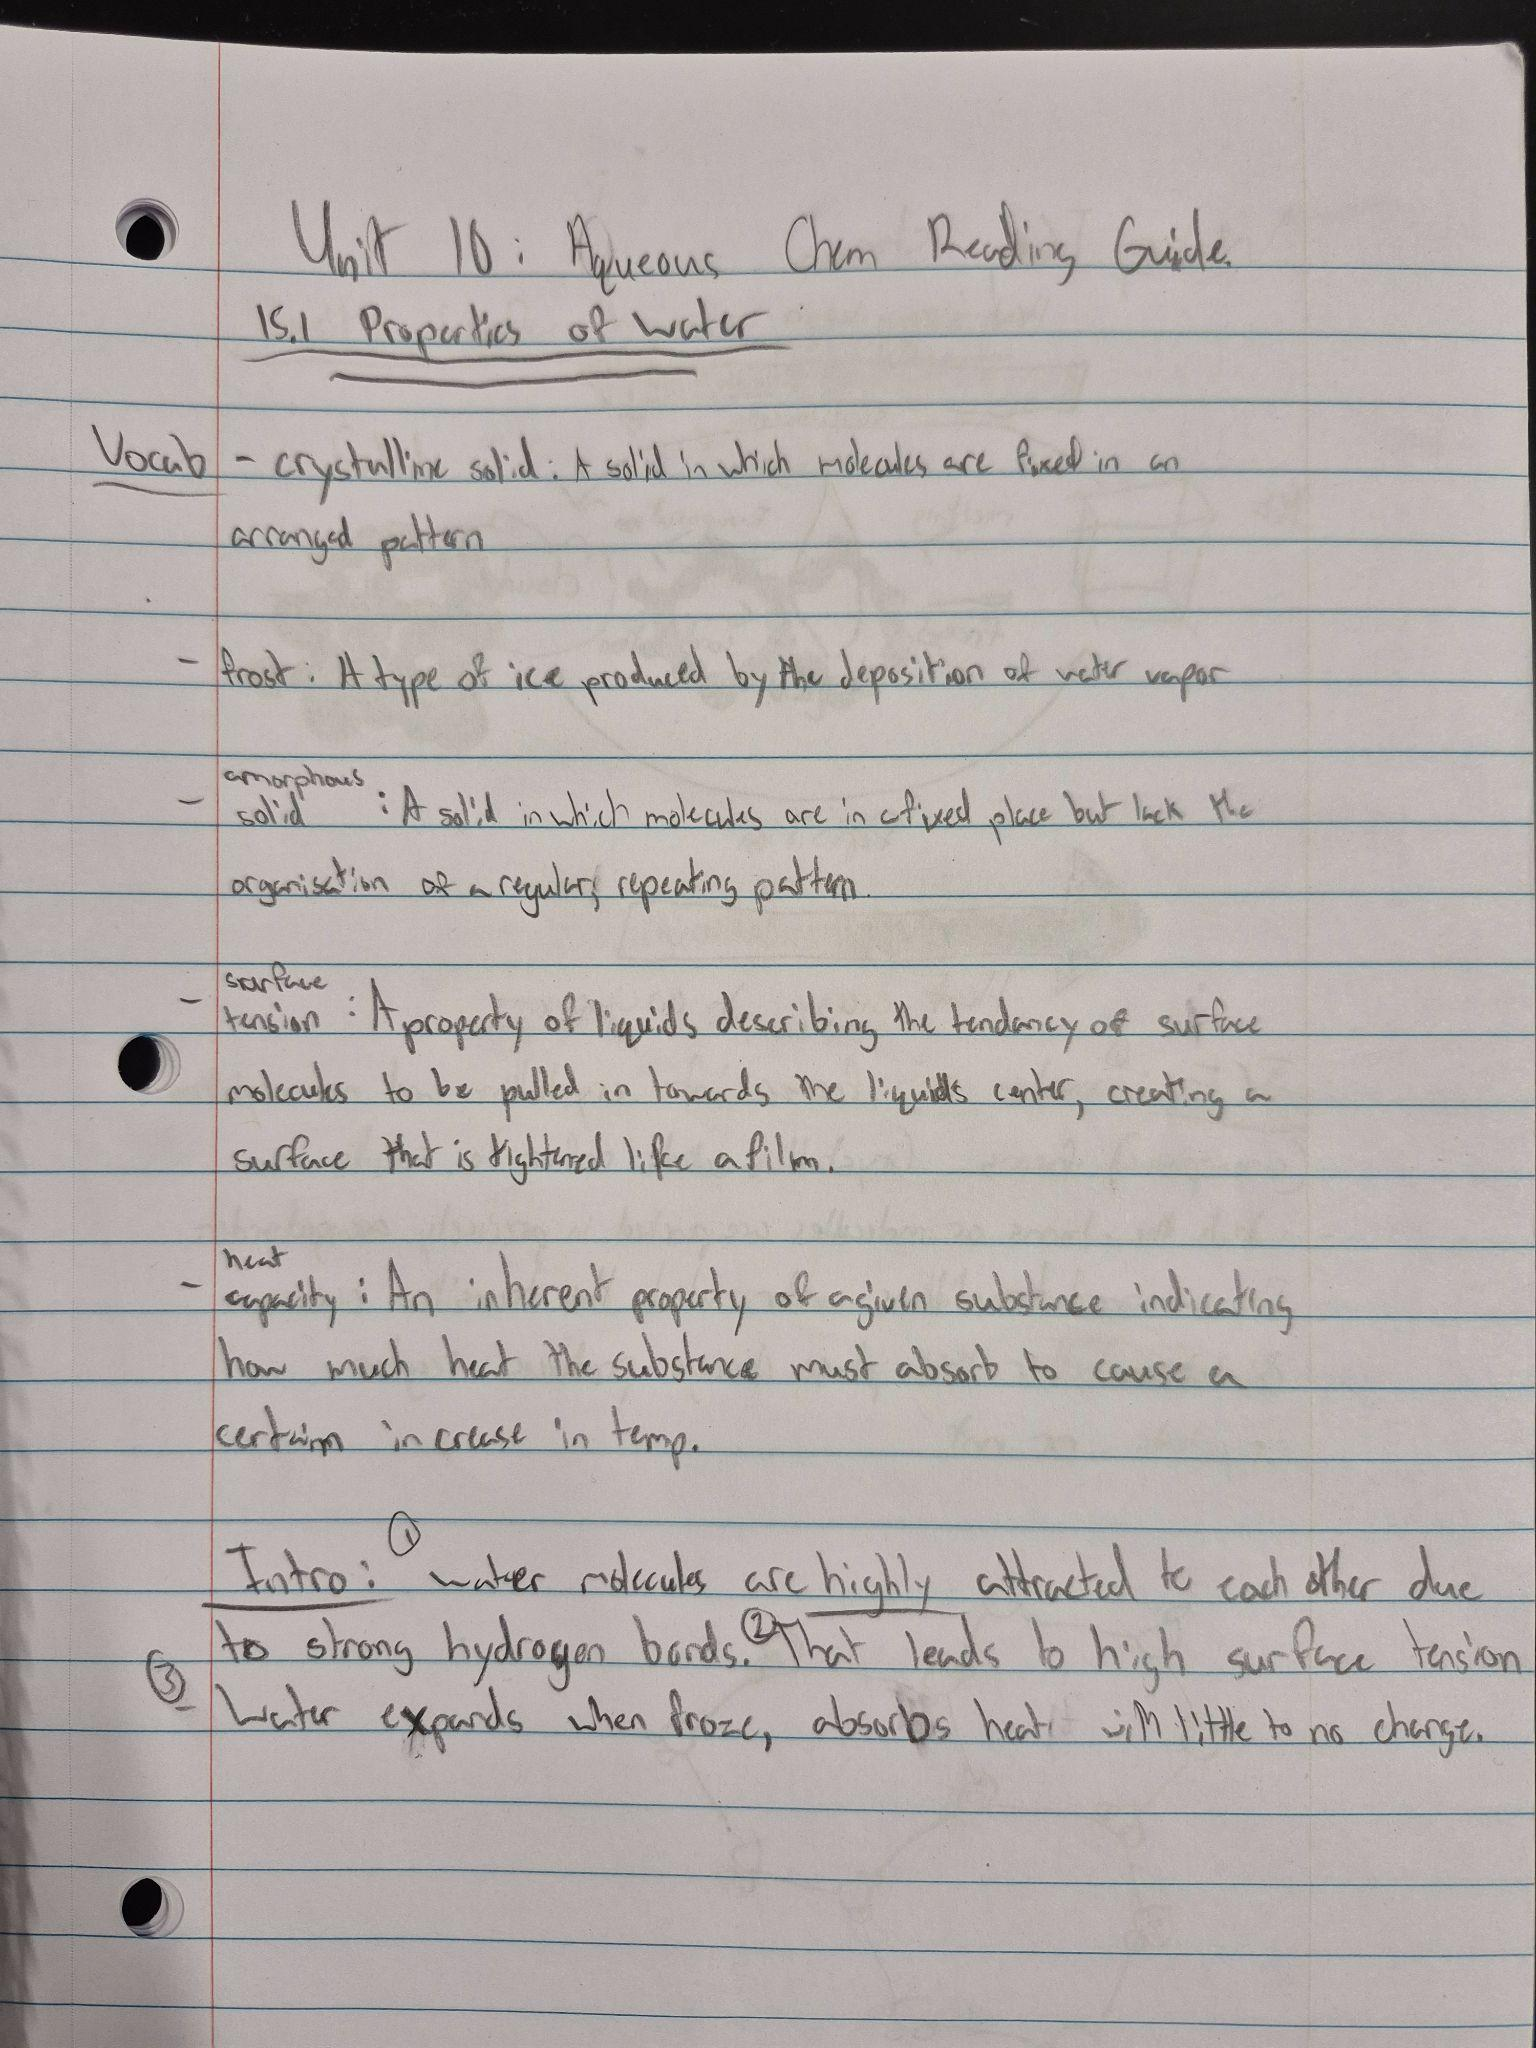 Unit 10: Aqueous Chem Reading Guide.
15.1 Properties of water
Vocab - crystalline solid: A solid in which molecules are fixed in an
arranged pattern
- frost: A type of ice produced by the deposition of water vapor
- amorphous
solid : A solid in which molecules are in a fixed place but lack the
organisation of a regular, repeating pattern.
- surface
tension : A property of liquids describing the tendancy of surface
molecules to be pulled in towards the liquids center, creating a
surface that is tightened like a film.
- heat
capacity : An inherent property of a given substance indicating
how much heat the substance must absorb to cause a
certain increase in temp.
Intro: ① water molecules are highly attracted to each other due
to strong hydrogen bonds. ② That leads to high surface tension
③ Water expands when froze, absorbs heat with little to no change.